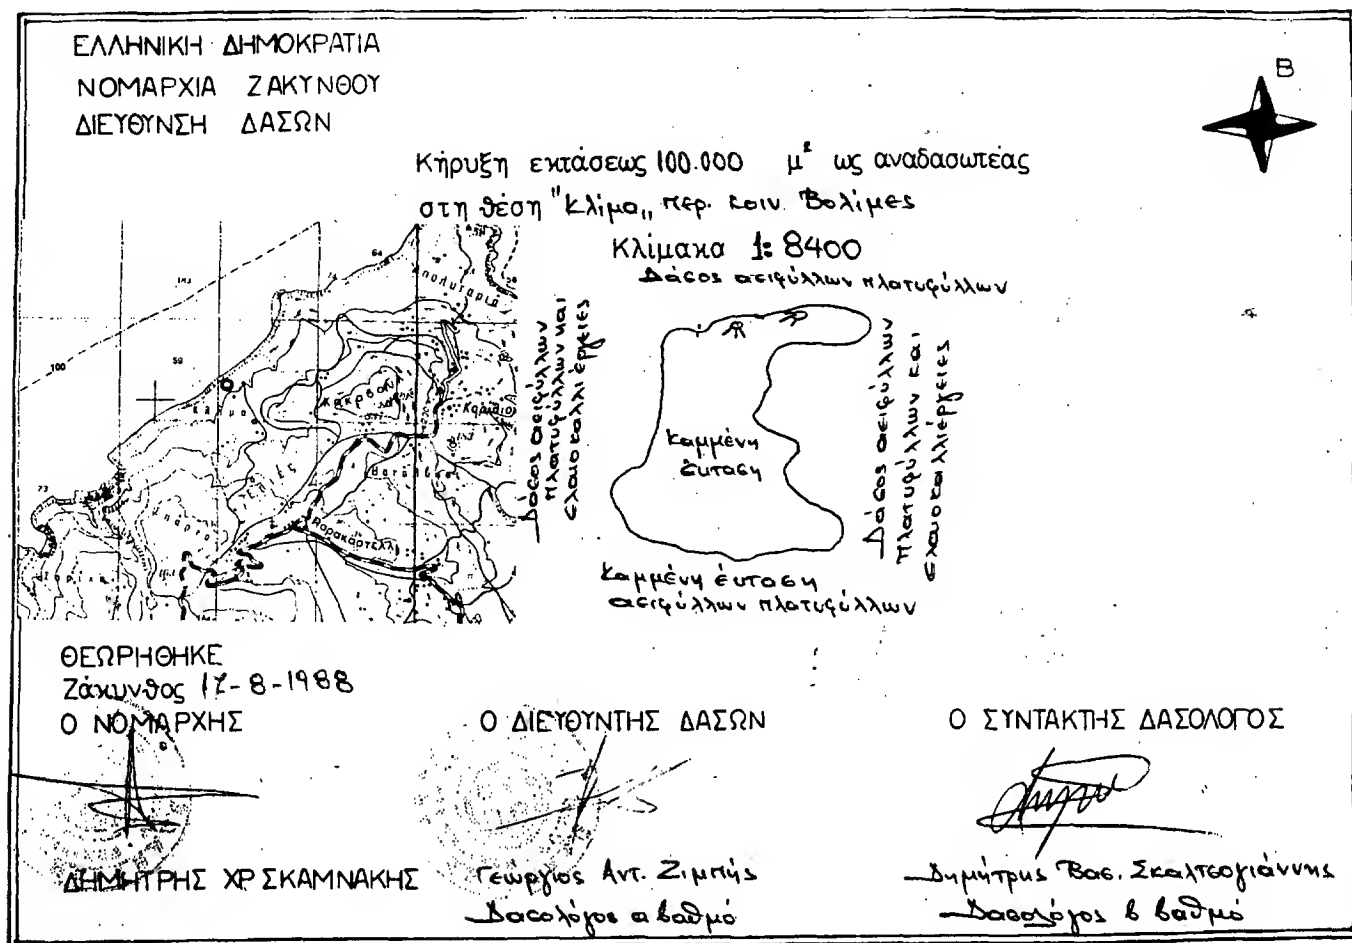 ΕΛΛΗΝΙΚΗ ΔΗΜΟΚΡΑΤΙΑ
ΝΟΜΑΡΧΙΑ ΖΑΚΥΝΘΟΥ
ΔΙΕΥΘΥΝΣΗ ΔΑΣΩΝ
Β
Κήρυξη εκτάσεως 100.000 μ² ως αναδασωτέας
στη θέση "Κλίμα„ περ. κοιν. Βολίμες
Κλίμακα 1: 8400
Δάσος αειφύλλων πλατυφύλλων
Δάσος αειφύλλων
πλατυφύλλων και
ελαιοκαλλιέργειες
Καμμένη
έκταση
Δάσος αειφύλλων
πλατυφύλλων και
ελαιοκαλλιέργειες
Καμμένη έκταση
αειφύλλων πλατυφύλλων
64
74
59
100
73
Απολυταριά
Κλίμα
Κακαβούλ
Παρακαρτέλλι
ΘΕΩΡΗΘΗΚΕ
Ζάκυνθος 17-8-1988
Ο ΝΟΜΑΡΧΗΣ
Ο ΔΙΕΥΘΥΝΤΗΣ ΔΑΣΩΝ
Ο ΣΥΝΤΑΚΤΗΣ ΔΑΣΟΛΟΓΟΣ
ΔΗΜΗΤΡΗΣ ΧΡ ΣΚΑΜΝΑΚΗΣ
Γεώργιος Αντ. Ζιμπής
Δασολόγος α βαθμό
Δημήτρης Βασ. Σκαλτσογιάννης
Δασολόγος β βαθμό